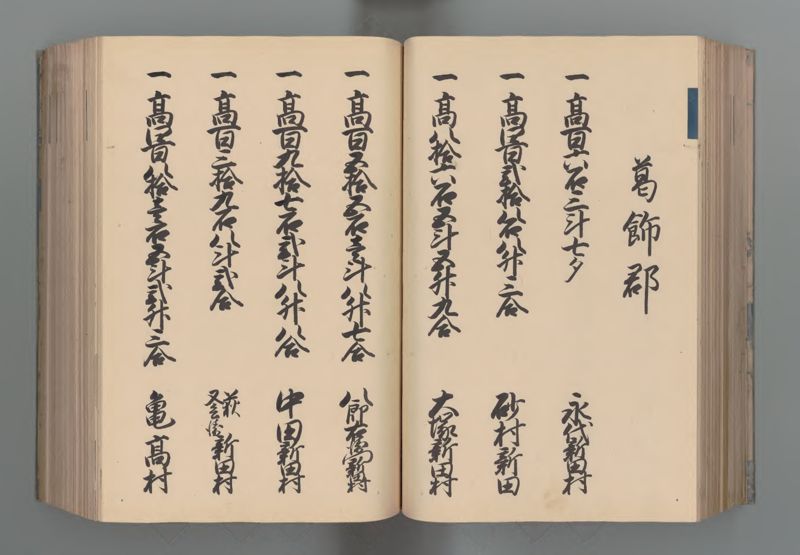 葛飾郡
一 高百六石三斗七夕
一 高四百弐拾八石八升三合 砂村新田
永代新田村
一 高八拾六石五斗五升九合 大塚新田村
一 高百五拾五石壱斗八升七合 八郎右衛門新田村
一 高百九拾七石弐斗八升八合 中田新田村
一 高百三拾九石八斗弐合 萩 又兵衛 新田村
一 高四百八拾壱石五斗弐升三合 亀高村